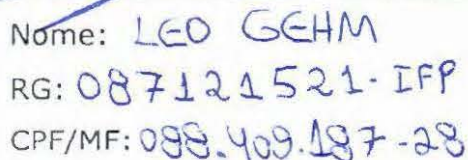 Nome: LEO GEHM
RG: 087121521-IFP
CPF/MF: 098.409.187-28